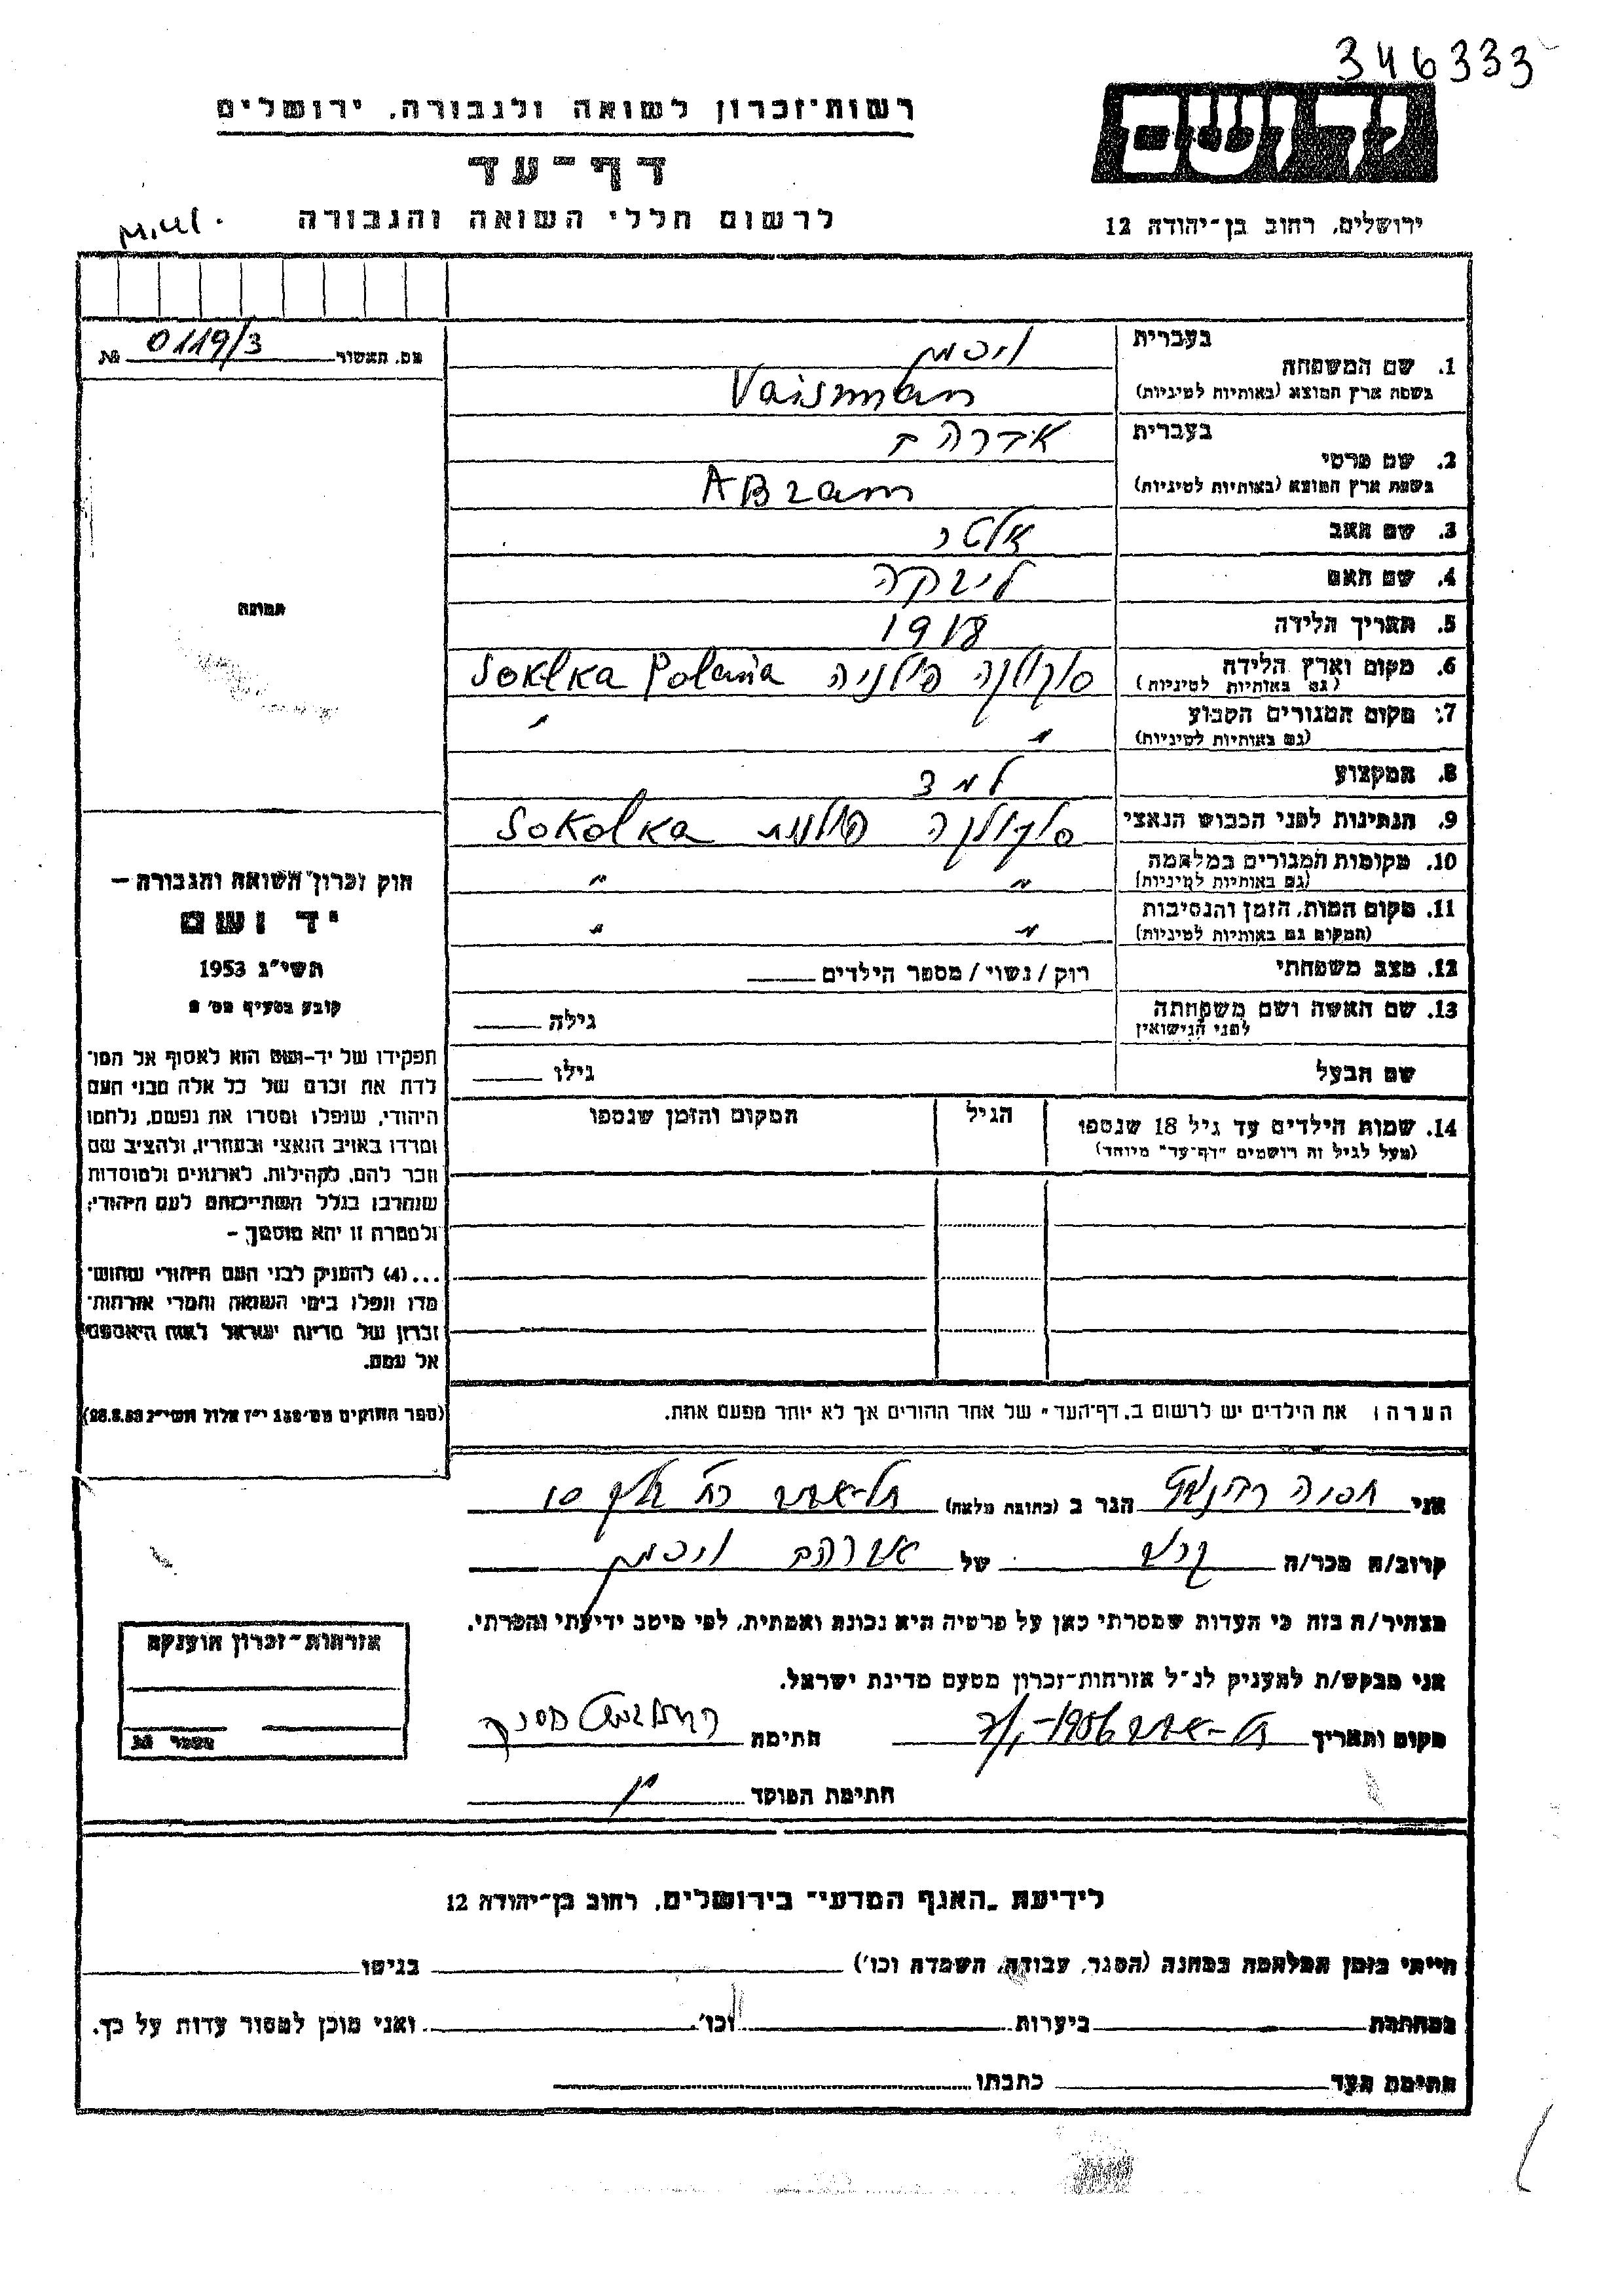 346333
רשות־זכרון לשואה ולגבורה, ירושלים
ידושם
דף־עד
לרשום חללי השואה והגבורה
ירושלים, רחוב בן־יהודה 12
בעברית
1. שם המשפחה
(באותיות לטיניות) בשפת ארץ המוצא
ויסמן
Vaisman
מס. האשור 0119/3 №
בעברית
2. שם פרטי
(באותיות לטיניות) בשפת ארץ המוצא
אברהם
ABram
3. שם האב אלטר
4. שם האם ליבקה
תמונה
5. תאריך הלידה 1918
6. מקום וארץ הלידה סוקולקה פולניה Soklka Polania
(גם באותיות לטיניות)
7. מקום המגורים הקבוע " "
(גם באותיות לטיניות)
8. המקצוע
9. הנתינות לפני הכבוש הנאצי סוקולקה פולנית Sokolka
10. מקומות המגורים במלחמה " "
(גם באותיות לטיניות)
11. מקום המות, הזמן והנסיבות " "
(המקום גם באותיות לטיניות)
12. מצב משפחתי רוק / נשוי / מספר הילדים
13. שם האשה ושם משפחתה גילה
לפני הנישואין
שם הבעל גילו
14. שמות הילדים עד גיל 18 שנספו הגיל המקום והזמן שנספו
(מעל לגיל זה רושמים "דף־עד" מיוחד)
חוק זכרון השואה והגבורה –
יד ושם
תשי"ג 1953
קובע בסעיף מס׳ 2
תפקידו של יד-ושם הוא לאסוף אל המו־
לדת את זכרם של כל אלה מבני העם
היהודי, שנפלו ומסרו את נפשם, נלחמו
ומרדו באויב הנאצי ובעוזריו, ולהציב שם
וזכר להם, לקהילות, לארגונים ולמוסדות
שנחרבו בגלל השתייכותם לעם היהודי;
ולמטרה זו יהא מוסמך –
...(4) להעניק לבני העם היהודי שהוש־
מדו ונפלו בימי השואה והמרי אזרחות־
זכרון של מדינת ישראל לאות היאספם
אל עמם.
(ספר החוקים מס׳ 132 י"ז אלול תשי"ג 28.8.53)
הערה: את הילדים יש לרשום ב„דף־העד" של אחד ההורים אך לא יותר מפעם אחת.
אני הגר ב (כתובת מלאה) תל-אביב
קרוב/ה מכר/ה של אברהם ויסמן
מצהיר/ה בזה כי העדות שמסרתי כאן על פרטיה היא נכונה ואמתית, לפי מיטב ידיעתי והכרתי.
אני מבקש/ת להעניק לנ"ל אזרחות־זכרון מטעם מדינת ישראל.
מקום ותאריך תל-אביב 1956 חתימה
חתימת הפוקד
אזרחות־זכרון הוענקה
מספר
לידיעת „האגף המדעי" בירושלים, רחוב בן־יהודה 12
הייתי בזמן המלחמה במחנה (הסגר, עבודה, השמדה וכו׳) בגיטו
במחתרת ביערות וכו׳ ואני מוכן למסור עדות על כך.
חתימת העד כתבתו